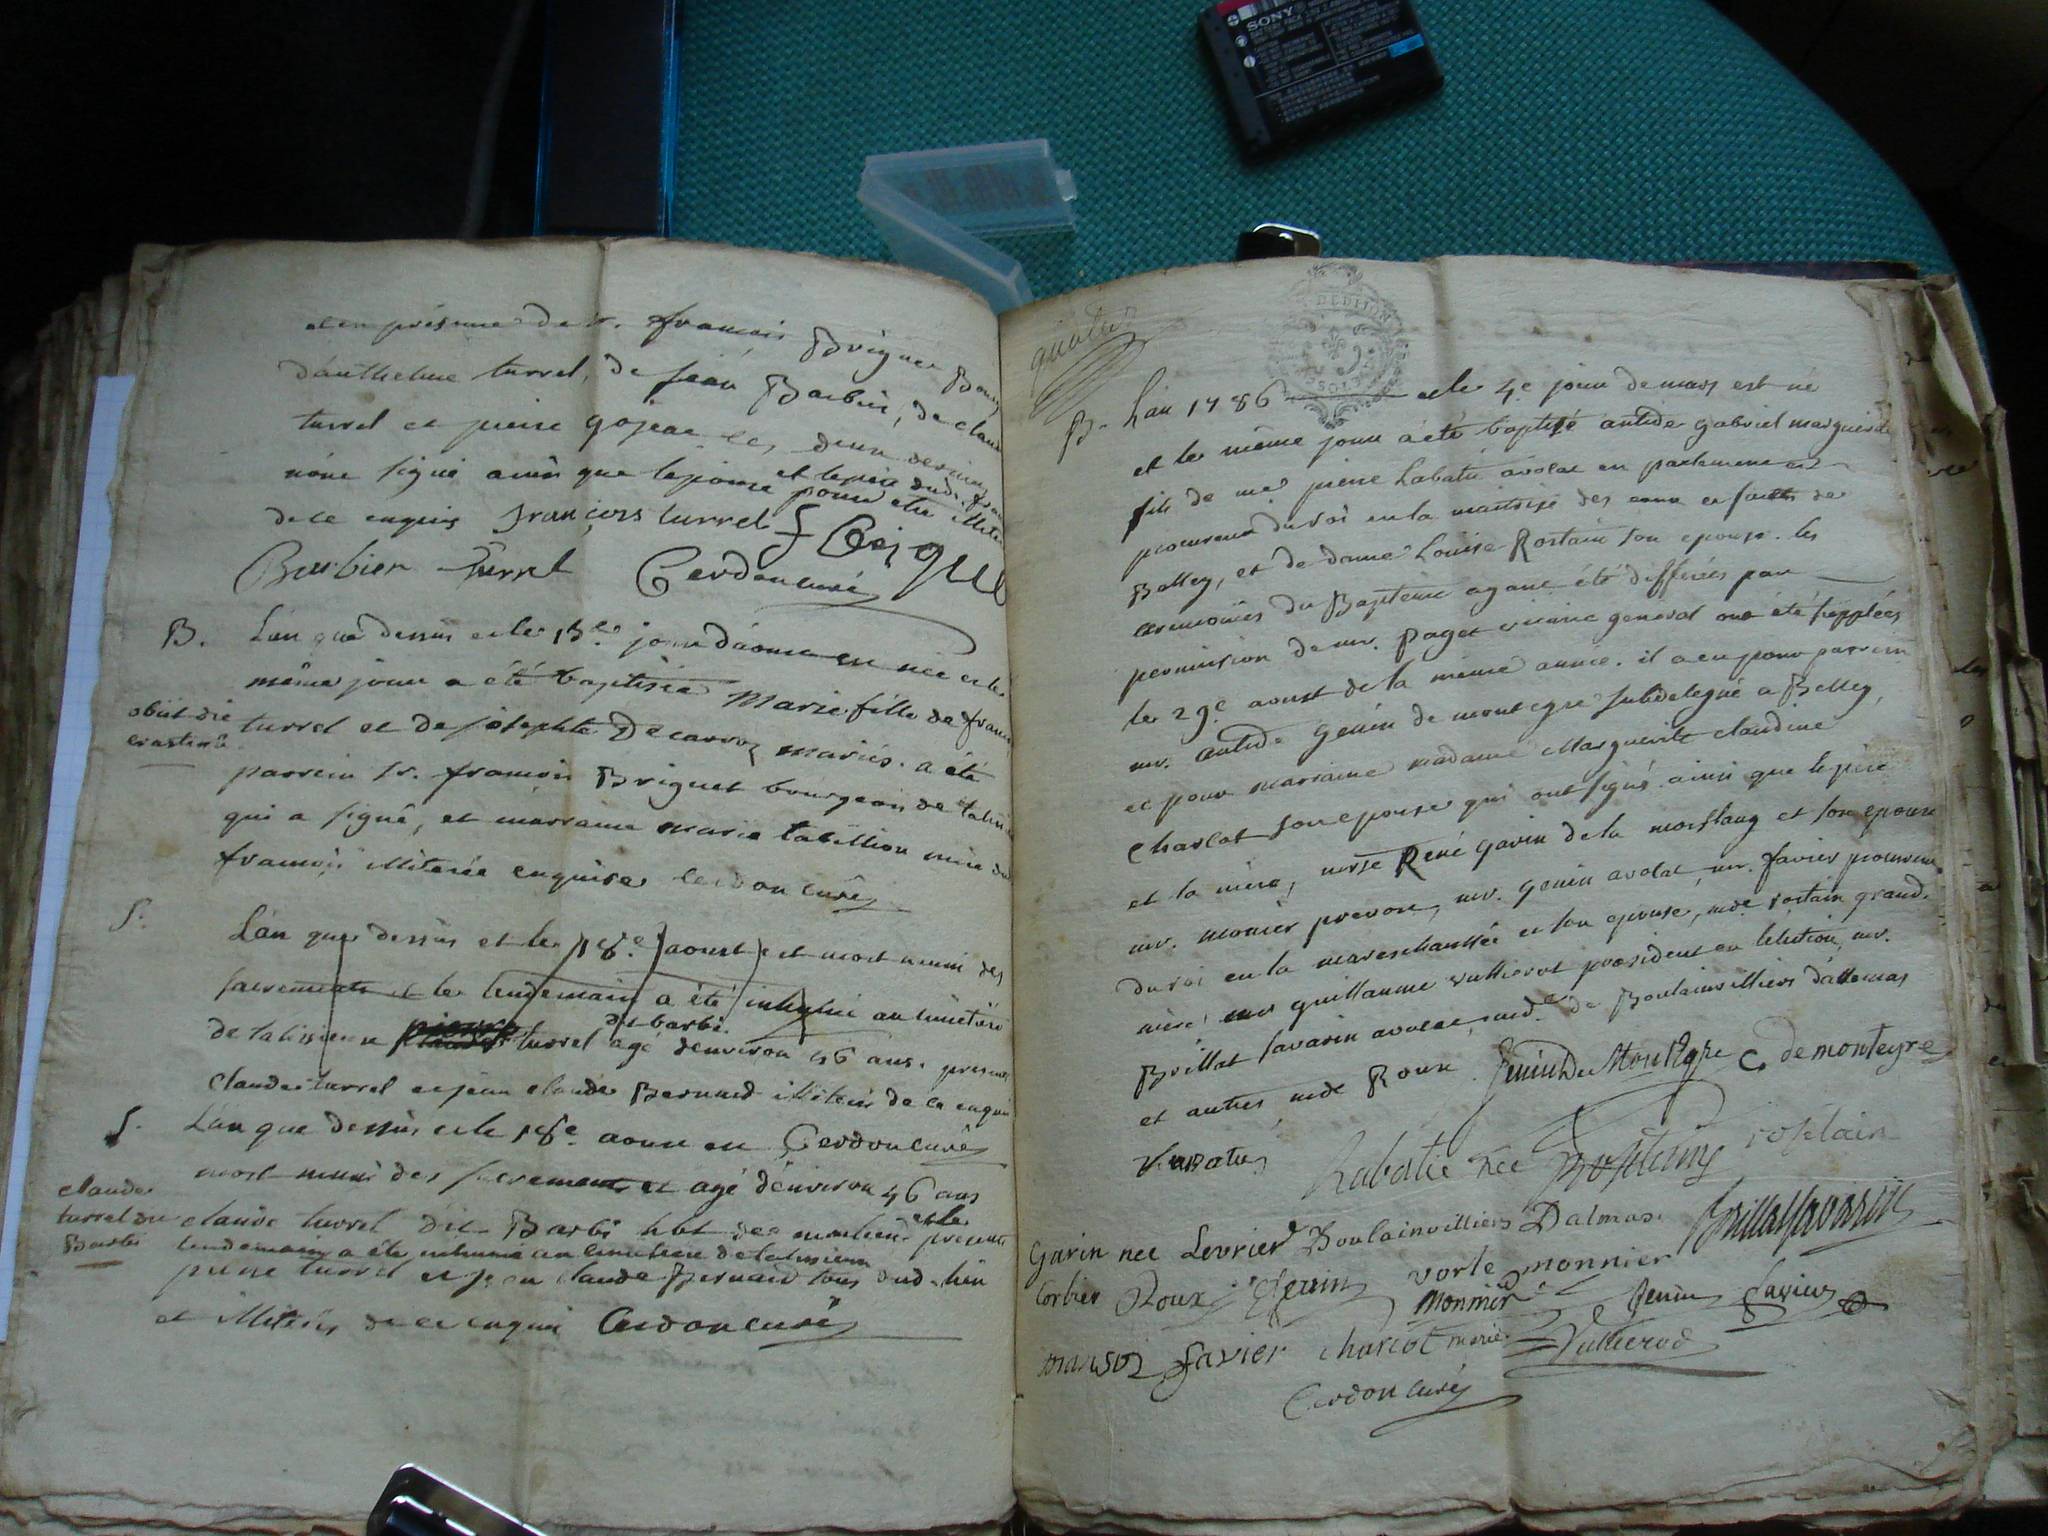 et en presence de sr. françois Briguet Bourg
d'anthelme turrel, de jean Barbier, de claud
turrel et pierre gojeac les deux derniers
et le père dud. fran
n'ont signé ainsi que lepouse pour etre illite
de ce enquis françois turrel
Barbier turrel Cerdon curé
B. L'an que dessus et le 15e jour d'aoust est née et le
même jour a été baptisée Marie fille de franc
obiit die
crastina
turrel et de josephte Decarroz mariés. a été
parrein sr. françois Briguet bourgeois de talissi
qui a signé, et marraine marie tabillion mère du
françois illiterée enquise Cerdon curé
S. L'an que dessus et le 18e aoust est mort muni des
sacrements et le lendemain a été inhumé au cimetière
dit barbi
de talissieu turrel agé denviron 46 ans. presents
claude turrel et jean claude Bernard illiterés de ce enquis
S. L'an que dessus et le 18e aoust est Cerdon curé
mort muni des sacrements et agé d'environ 46 ans
claude
turrel du
Barbi
claude turrel dit Barbi hbt des et le presents
lendemain a été inhumé au cimetière de talissieu
pierre turrel et jean claude Bernard tous dud. lieu
et illiterés de ce enquis Cerdon curé
SONY
DE DIJON
B. L'an 1786 et le 4e jour de mars est né
et le même jour a été baptisé antide gabriel marguerite
fils de me pierre Labatie avocat en parlement et
procureur du roi en la maitrise des eaux et forets de
Belley, et de dame Louise Rostain son epouse. les
ceremonies du Baptême ayant été differées par
permission de mr. Paget vicaire general ont été supplées
le 29e aoust de la même année. il a eu pour parrein
mr. antide genin de montegre subdelegué a Belley,
et pour marraine madame Marguerite claudine
Charcot son epouse qui ont signé ainsi que le père
et la mère, René Garin de la morflang et son epouse
mr. monier prevost, mr. genin avocat, mr. favier procureur
du roi en la mareschaussée et son epouse, mde rostain grand.
mère, mr guillaume vullierot president en l'election, mr.
Brillat savarin avocat, mde de Boulainvilliers d'allemas
et autres mde Roux genin De Montegre C de montegre
Labatie Labatie née Rostaing rostain
garin nee Levrier Boulainvilliers Dalmas. Brillat Savarin
Corbier Roux Genin vorle monnier
monnier Genin favier
manson favier charcot Vullierod
Cerdon curé